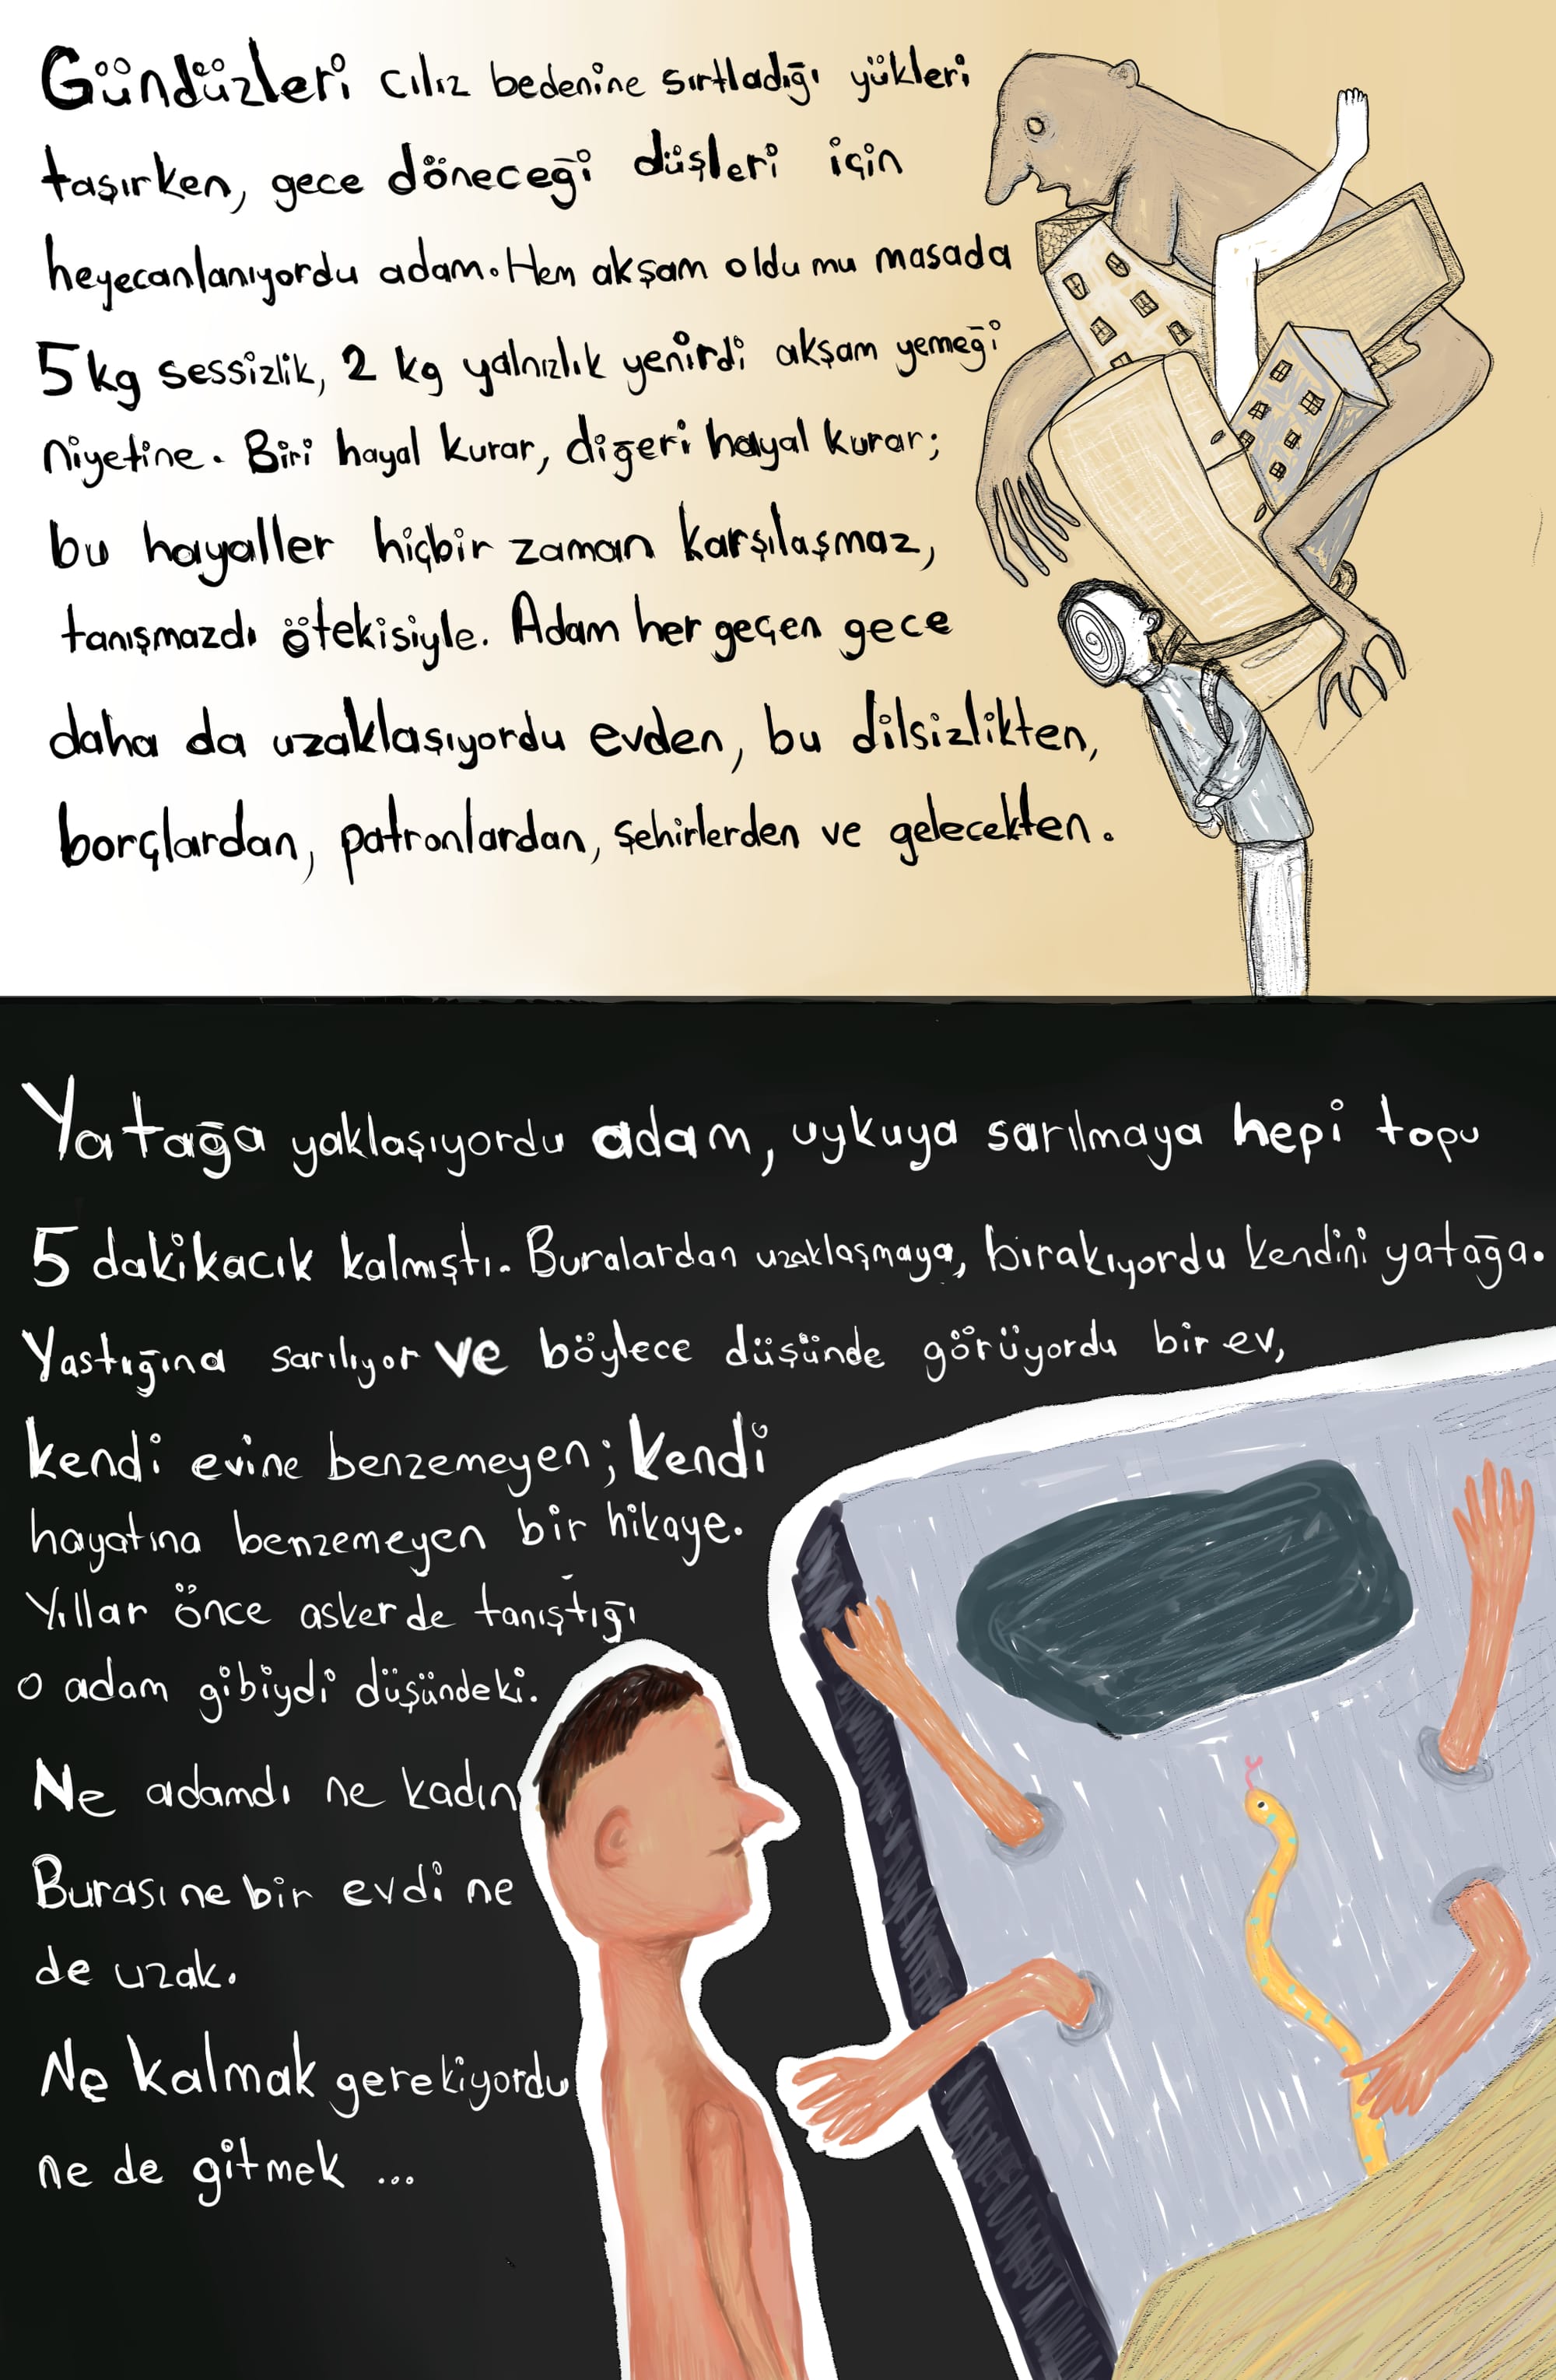 Gündüzleri cılız bedenine sırtladığı yükleri
taşırken, gece döneceği düşleri için
heyecanlanıyordu adam. Hem akşam oldu mu masada
5 kg sessizlik, 2 kg yalnızlık yenirdi akşam yemeği
niyetine. Biri hayal kurar, diğeri hayal kurar;
bu hayaller hiçbir zaman karşılaşmaz,
tanışmazdı ötekisiyle. Adam her geçen gece
daha da uzaklaşıyordu evden, bu dilsizlikten,
borçlardan, patronlardan, şehirlerden ve gelecekten.
Yatağa yaklaşıyordu adam, uykuya sarılmaya hepi topu
5 dakikacık kalmıştı. Buralardan uzaklaşmaya, bırakıyordu kendini yatağa.
Yastığına sarılıyor ve böylece düşünde görüyordu bir ev,
kendi evine benzemeyen; kendi
hayatına benzemeyen bir hikaye.
Yıllar önce askerde tanıştığı
o adam gibiydi düşündeki.
Ne adamdı ne kadın
Burası ne bir evdi ne
de uzak.
Ne kalmak gerekiyordu
ne de gitmek ...